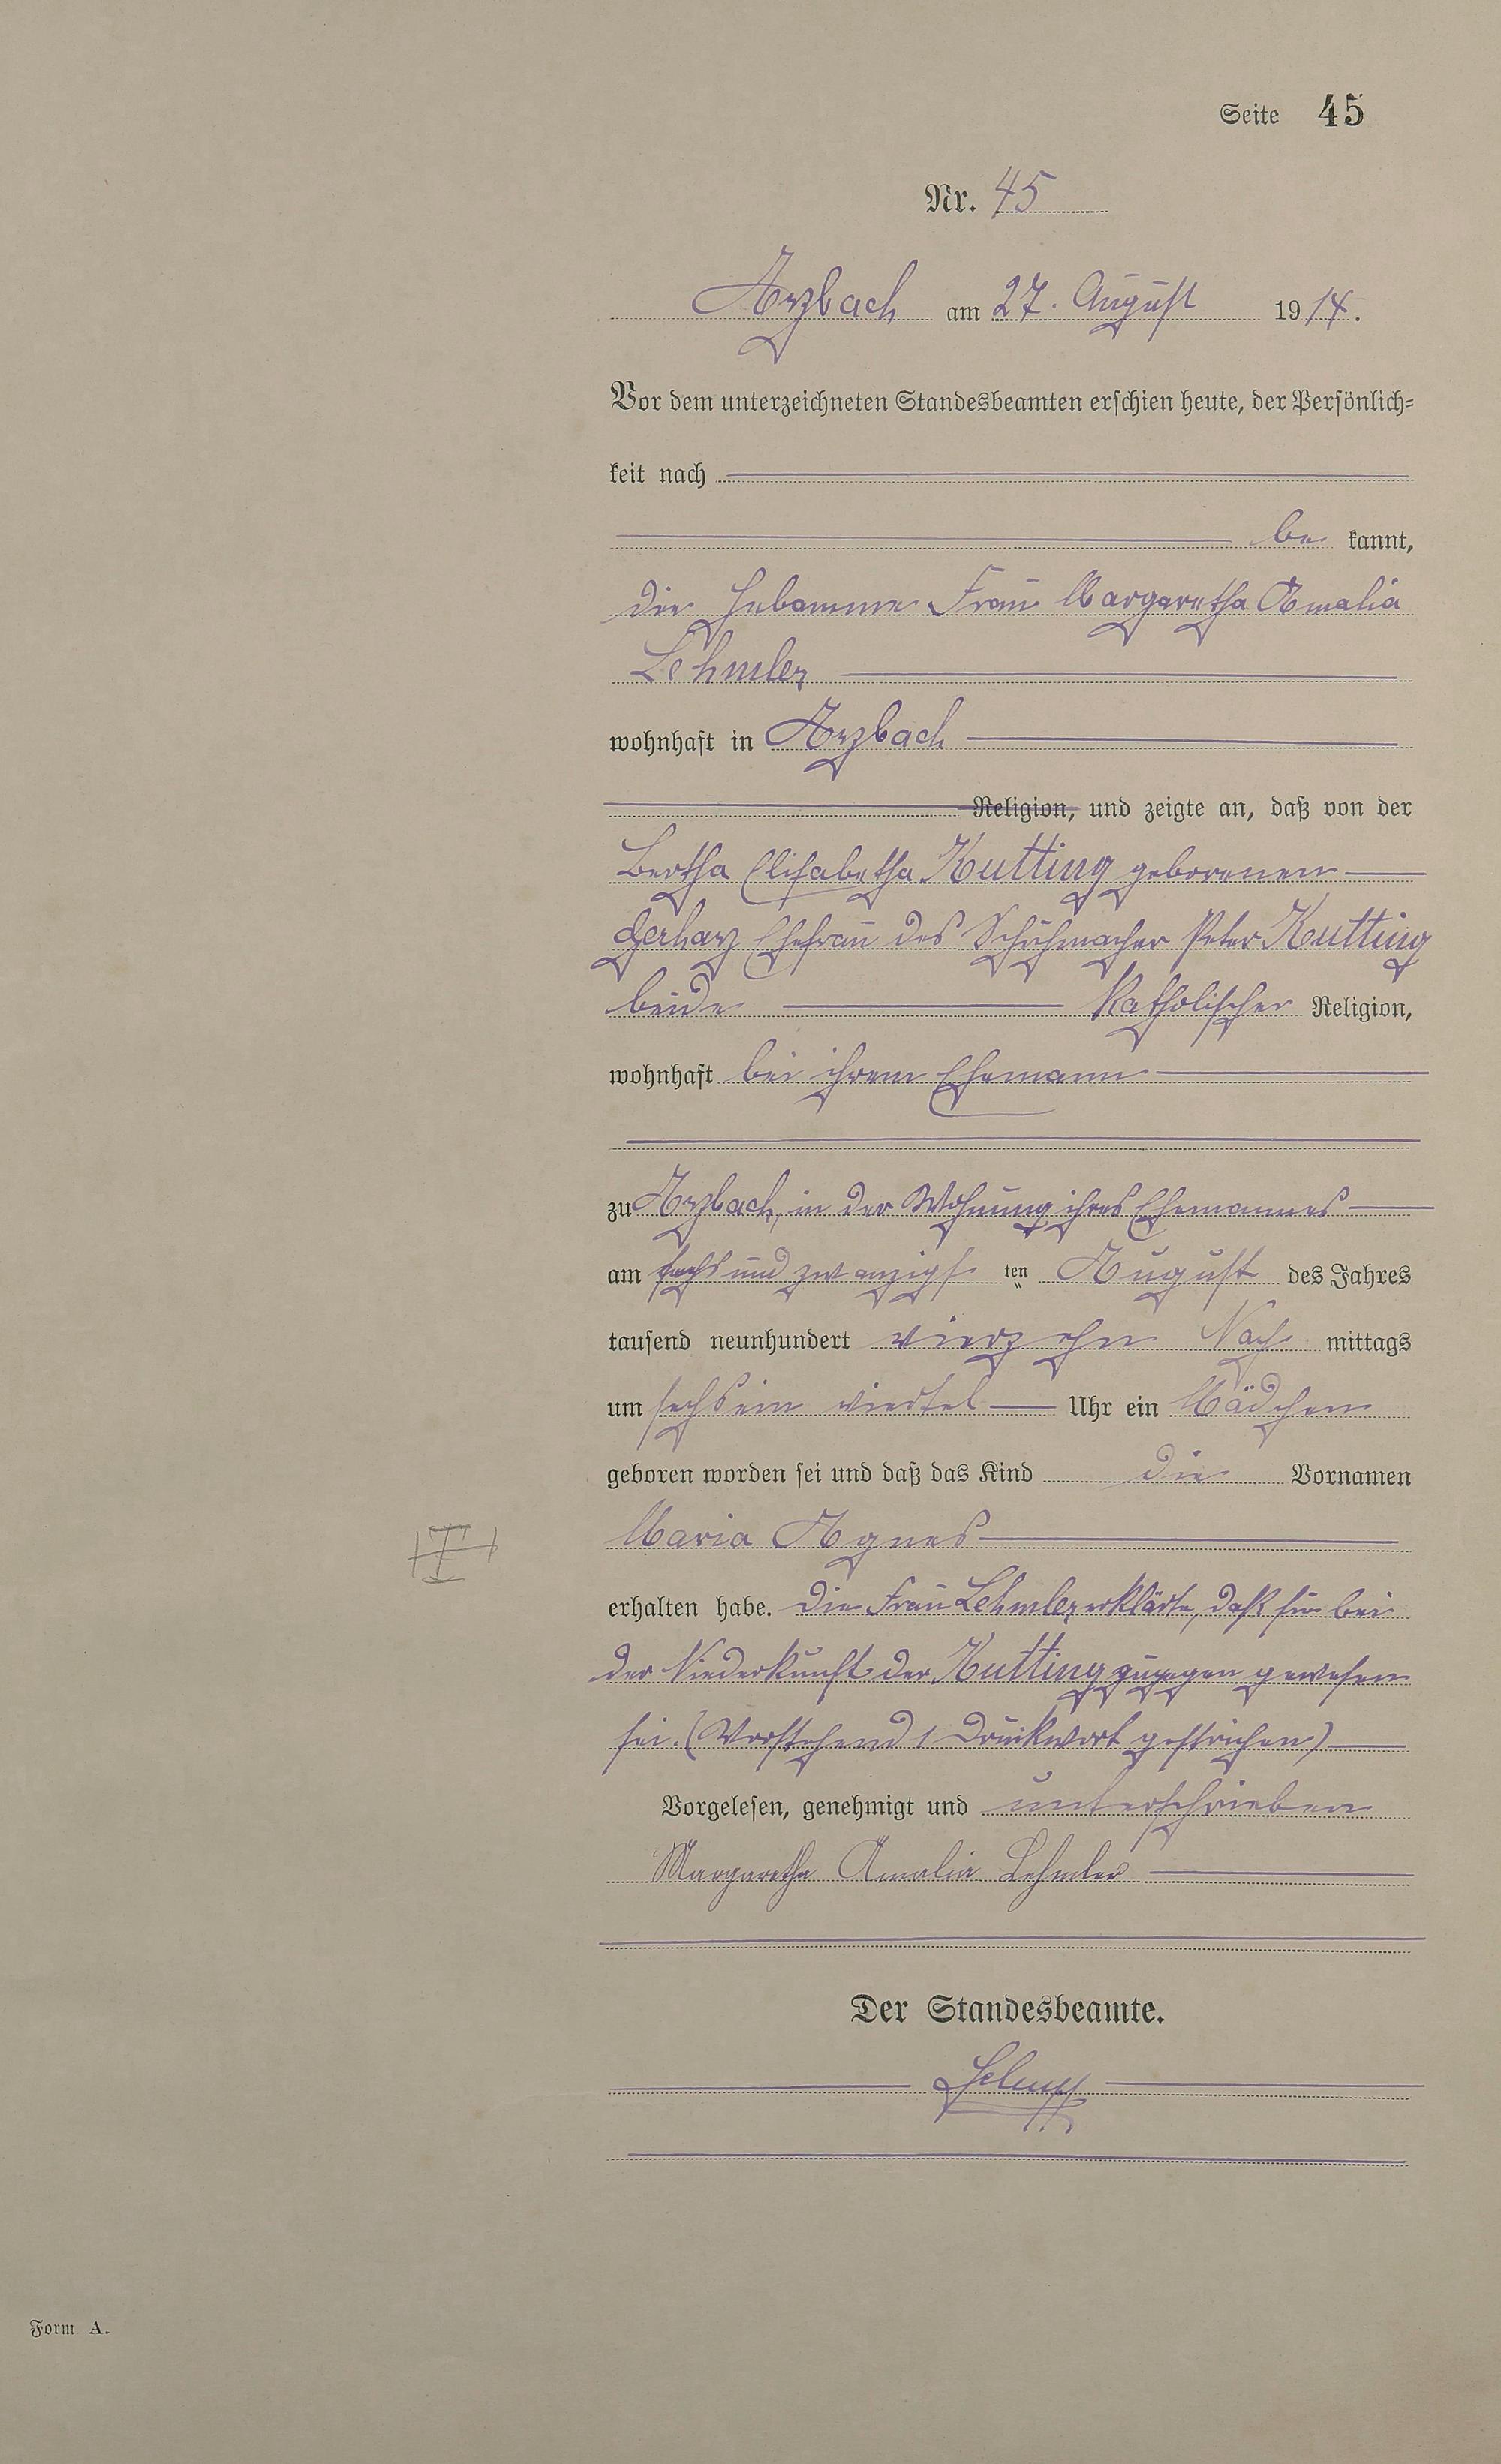 Seite 45
Nr. 45
Arzbach am 27. August 1914.
Vor dem unterzeichneten Standesbeamten erschien heute, der Persönlich-
keit nach
be kannt,
die Hebamme Frau Margaretha Amalia
Lehmler
wohnhaft in Arzbach
Religion, und zeigte an, daß von der
Bertha Elisabetha Kutting geborenen
Gerharz Ehefrau des Schuhmacher Peter Kutting
beide katholischer Religion,
wohnhaft bei ihrem Ehemann
zu Arzbach, in der Wohnung ihres Ehemannes
am sechsundzwanzigsten August des Jahres
tausend neunhundert vierzehn Nach mittags
um sechs ein viertel Uhr ein Mädchen
geboren worden sei und daß das Kind die Vornamen
Maria Agnes
erhalten habe. Die Frau Lehmler erklärte, daß sie bei
der Niederkunft der Kutting zugegen gewesen
sei. (Vorstehend 1 Druckwort gestrichen)
Vorgelesen, genehmigt und unterschrieben
Margaretha Amalia Lehmler
Der Standesbeamte.
Form A.